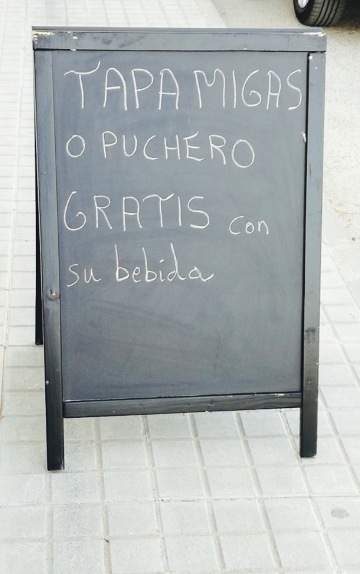 TAPA MIGAS
O PUCHERO
GRATIS con
su bebida